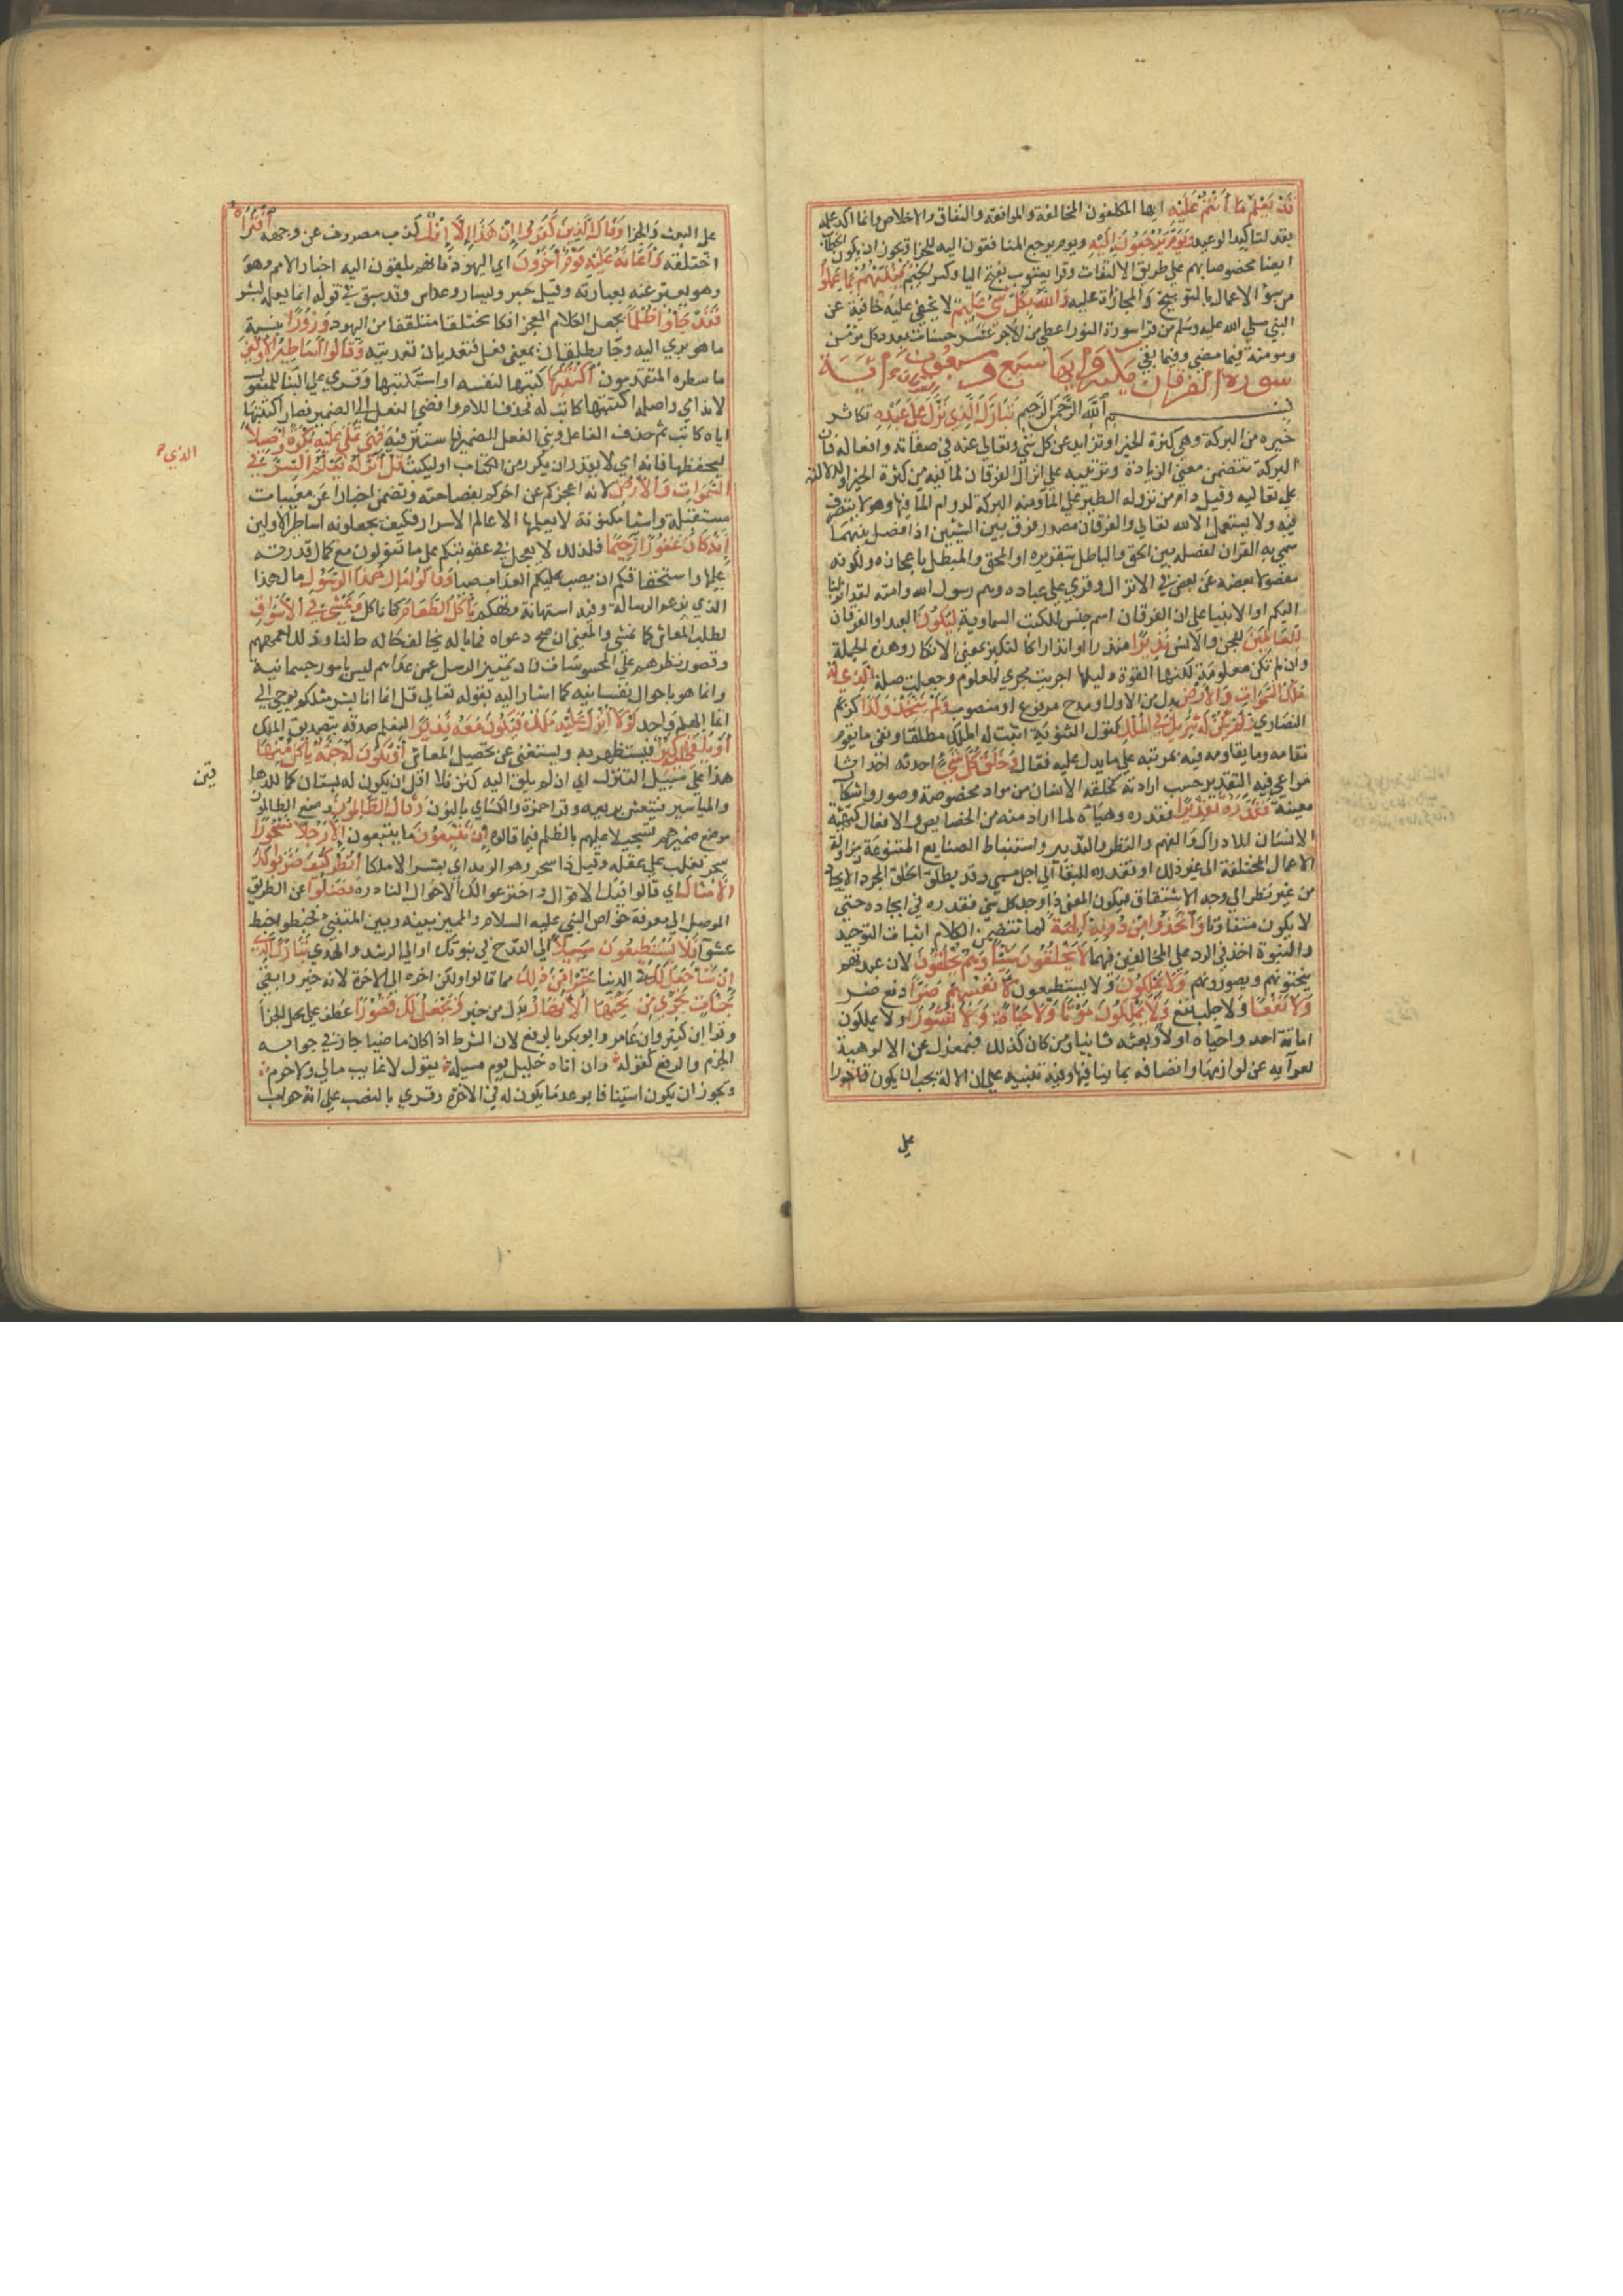 قَدْ يَعْلَمُ مَا أَنْتُمْ عَلَيْهِ ايها المكلفون المخالفة والموافقة والنفاق والاخلاص وانما اكد علمه
بقد لتاكيد الوعيد وَيَوْمَ يُرْجَعُونَ إِلَيْهِ ويوم يرجع المنافقون اليه للجزا ويجوز ان يكون الخطاب
ايضا مخصوصا بهم على طريق الالتفات وقرا يعقوب بفتح اليا وكسر الجيم فَيُنَبِّئُهُمْ بِمَا عَمِلُوا
من سؤ الاعمال بالتوبيخ والمجازاة عليه وَاللَّهُ بِكُلِّ شَيْءٍ عَلِيمٌ لا يخفى عليه خافية عن
النبي صلي الله عليه وسلم من قرا سورة النور اعطي من الاجر عشر حسنات بعدد كل مؤمن
ومومنة فيما مضي وفيما بقي
سورة الفرقان مكية وايها سبع وسبعون اية
بسم اللَّه الرَّحمن الرَّحِيم تَبَارَكَ الَّذِي نَزَّلَ الفرقان عَلَى عَبْدِهِ تكاثر
خيره من البركة وهي كثرة الخير او تزايد عن كل شي وتعالي عنه في صفاته وافعاله فان
البركة تتضمن معني الزيادة وترتيبه علي انزال الفرقان لما فيه من كثرة الخير او لدلالته
علي تعاليه وقيل دام من بروك الطير علي الما ومنه البركة لدوام الما فيها وهو لا يتصرف
فيه ولا يستعمل الا لله تعالي والفرقان مصدر فرق بين الشيئين اذا فصل بينهما
سمي به القران لفصله بين الحق والباطل بتقريره او المحق والمبطل باعجازه ولكونه
مفصولا بعضه عن بعض في الانزال وقري علي عباده وهم رسول الله وامته لقد انزلنا
اليكم او الانبيا علي ان الفرقان اسم جنس للكتب السماوية لِيَكُونَ العبد او الفرقان
لِلْعَالَمِينَ للجن والانس نَذِيرًا منذرا او انذارا كالنكير بمعني الانكار وهذه الجملة
وان لم تكن معلومة لكنها لقوة دليلها اجريت مجري المعلوم وجعلت صلة الَّذِي لَهُ
مُلْكُ السَّمَوَاتِ وَالْأَرْضِ بدل من الاول او مدح مرفوع او منصوب وَلَمْ يَتَّخِذْ وَلَدًا كزعم
النصاري وَلَمْ يَكُنْ لَهُ شَرِيكٌ فِي الْمُلْكِ كقول الثنوية اثبت له الملك مطلقا ونفي ما يقوم
مقامه وما يقاومه فيه ثم نبه علي ما يدل عليه فقال وَخَلَقَ كُلَّ شَيْءٍ احدثه احداثا
مراعي فيه التقدير حسب ارادته كخلقه الانسان من مواد مخصوصة وصور واشكال
معينة فَقَدَّرَهُ تَقْدِيرًا فقدره وهياه لما اراد منه من الخصايص والافعال كتهيئة
الانسان للادراك والفهم والنظر والتدبير واستنباط الصنايع المتنوعة ومزاولة
الاعمال المختلفة الي غير ذلك او فقدره للبقا الي اجل مسمي وقد يطلق الخلق لمجرد الايجاد
من غير نظر الي وجه الاشتقاق فيكون المعني واوجد كل شي فقدره في ايجاده حتي
لا يكون متفاوتا وَاتَّخَذُوا مِنْ دُونِهِ آلِهَةً لما تضمن الكلام اثبات التوحيد
والنبوة اخذ في الرد علي المخالفين فيهما لَا يَخْلُقُونَ شَيْئًا وَهُمْ يُخْلَقُونَ لان عبدتهم
ينحتونهم ويصورونهم وَلَا يَمْلِكُونَ ولا يستطيعون لِأَنْفُسِهِمْ ضَرًّا دفع ضر
وَلَا نَفْعًا ولا جلب نفع وَلَا يَمْلِكُونَ مَوْتًا وَلَا حَيَاةً وَلَا نُشُورًا ولا يملكون
اماتة احد واحياه اولا وبعثه ثانيا ومن كان كذلك فبمعزل عن الالوهية
لعرائه عن لوازمها واتصافه بما ينافيها وفيه تنبيه علي ان الاله يجب ان يكون قادرا
علي
علي البعث والجزا وَقَالَ الَّذِينَ كَفَرُوا إِنْ هَذَا إِلَّا إِفْكٌ كذب مصروف عن وجهه افْتَرَاهُ
اختلقه وَأَعَانَهُ عَلَيْهِ قَوْمٌ آخَرُونَ اي اليهود فانهم يلقون اليه اخبار الامم وهو
وهو يعبر عنه بعبارته وقيل جبر ويسار وعداس وقد سبق في قوله انما يعلمه بشر
فَقَدْ جَاؤُا ظُلْمًا بجعل الكلام المعجز افكا مختلقا متلقفا من اليهود وَزُورًا بنسبة
ما هو بري اليه وجا يطلقان بمعني فعل فيعديان تعديته وَقَالُوا أَسَاطِيرُ الْأَوَّلِينَ
ما سطره المتقدمون اكْتَتَبَهَا كتبها لنفسه او استكتبها وقري علي البنا للمفعول
لانه امي واصله اكتتبها كاتب له فحذف اللام وافضي الفعل الي الضمير فصار اكتتبها
اياه كاتب ثم حذف الفاعل وبني الفعل للضمير فاستتر فيه فَهِيَ تُمْلَى عَلَيْهِ بُكْرَةً وَأَصِيلًا
ليحفظها فانه امي لا يقدر ان يكرر من الكتاب او ليكتب قُلْ أَنْزَلَهُ يَعْلَمُ السِّرَّ فِي
الذي
السَّمَوَاتِ وَالْأَرْضِ لانه اعجزكم عن اخركم بفصاحته وتضمن اخبارا عن مغيبات
مستقبلة واشيا مكنونة لا يعلمها الا عالم الاسرار فكيف يجعلونه اساطير الاولين
إِنَّهُ كَانَ غَفُورًا رَحِيمًا فلذلك لا يعجل في عقوبتكم علي ما تقولون مع كمال قدرته
عليها واستحقاقكم ان يصب عليكم العذاب صبا وَقَالُوا مَالِ هَذَا الرَّسُولِ ما لهذا
الذي يزعم الرسالة وفيه استهانة وتهكم يَأْكُلُ الطَّعَامَ كما ناكل وَيَمْشِي فِي الْأَسْوَاقِ
لطلب المعاش كما نمشي والمعني ان صح دعواه فما باله يخالف حاله حالنا وذلك لعمههم
وقصور نظرهم علي المحسوسات فان تمييز الرسل عمن عداهم ليس بامور جسمانية
وانما هو باحوال نفسانيه كما اشار اليه بقوله تعالي قل انما انا بشر مثلكم يوحي الي
انما الهكم واحد لَوْلَا أُنْزِلَ عَلَيْهِ مَلَكٌ فَيَكُونَ مَعَهُ نَذِيرًا لنعلم صدقه بتصديق الملك
أَوْ يُلْقَى إِلَيْهِ كَنْزٌ فيستظهر به ويستغني عن تحصيل المعاش أَوْ تَكُونُ لَهُ جَنَّةٌ يَأْكُلُ مِنْهَا
هذا علي سبيل التنزل اي ان لم يلق اليه كنز فلا اقل ان يكون له بستان كما للدها
قين
والمياسير فيتعيش بريعه وقرا حمزة والكساي بالنون وَقَالَ الظَّالِمُونَ وضع الظالمون
موضع ضميرهم تسجيلا عليهم بالظلم فيما قالوه إِنْ تَتَّبِعُونَ ما يتبعون إِلَّا رَجُلًا مَسْحُورًا
سحر فغلب علي عقله وقيل ذا سحر وهو الرية اي بشرا لا ملكا انْظُرْ كَيْفَ ضَرَبُوا لَكَ
الْأَمْثَالَ اي قالوا فيك الاقوال واخترعوا لك الاحوال النادرة فَضَلُّوا عن الطريق
الموصل الي معرفة خواص النبي عليه السلام والمميز بينه وبين المتنبي فخبطوا خبط
عشوا فَلَا يَسْتَطِيعُونَ سَبِيلًا الي القدح في نبوتك او الي الرشد والهدي تَبَارَكَ الَّذِي
إِنْ شَاءَ جَعَلَ لَكَ في الدنيا خَيْرًا مِنْ ذَلِكَ مما قالوا ولكن اخره الي الاخرة لانه خير وابقي
جَنَّاتٍ تَجْرِي مِنْ تَحْتِهَا الْأَنْهَارُ بدل من خير وَيَجْعَلْ لَكَ قُصُورًا عطف علي محل الجزا
وقرا ابن كثير وابن عامر وابو بكر بالرفع لان الشرط اذا كان ماضيا جاز في جوابه
الجزم والرفع كقوله وان اتاه خليل يوم مسيلة يقول لا غايب مالي ولا حرم
ويجوز ان يكون استينافا بوعد ما يكون له في الاخرة وقري بالنصب علي انه جواب